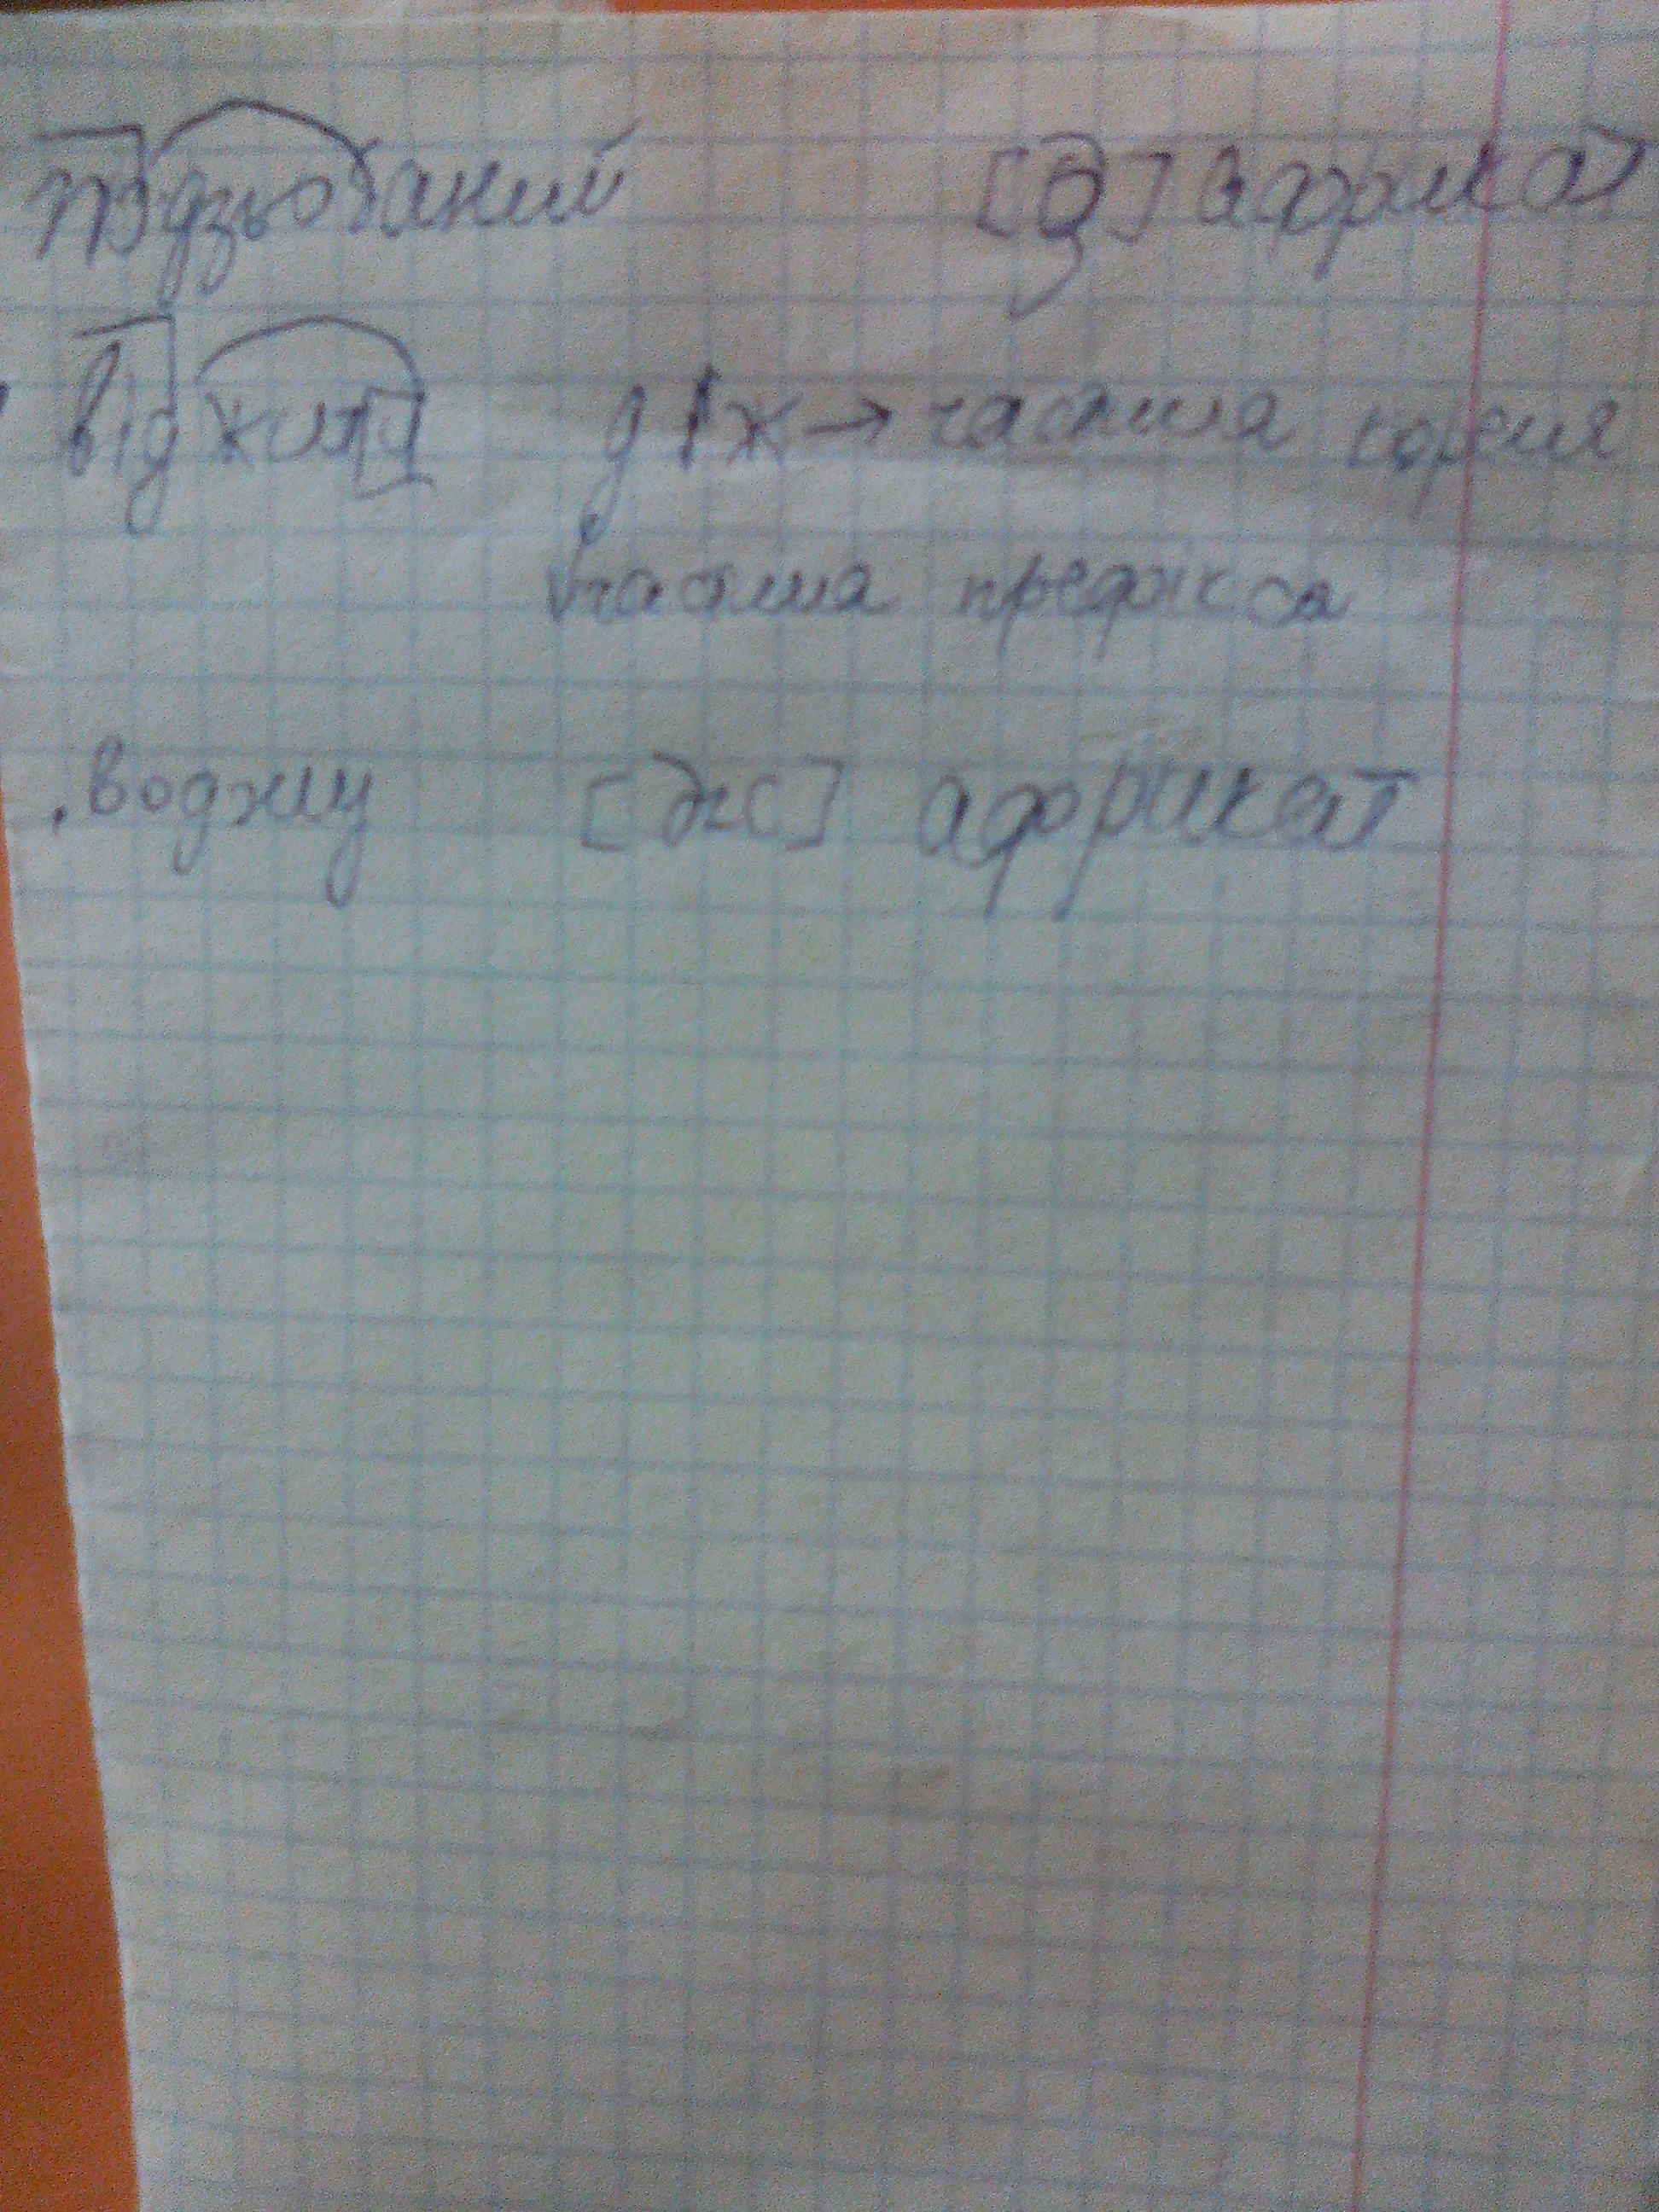 подзьобаний [дз] африкат
віджила д|ж → частина кореня
частина префікса
.воджу [дж] африкат